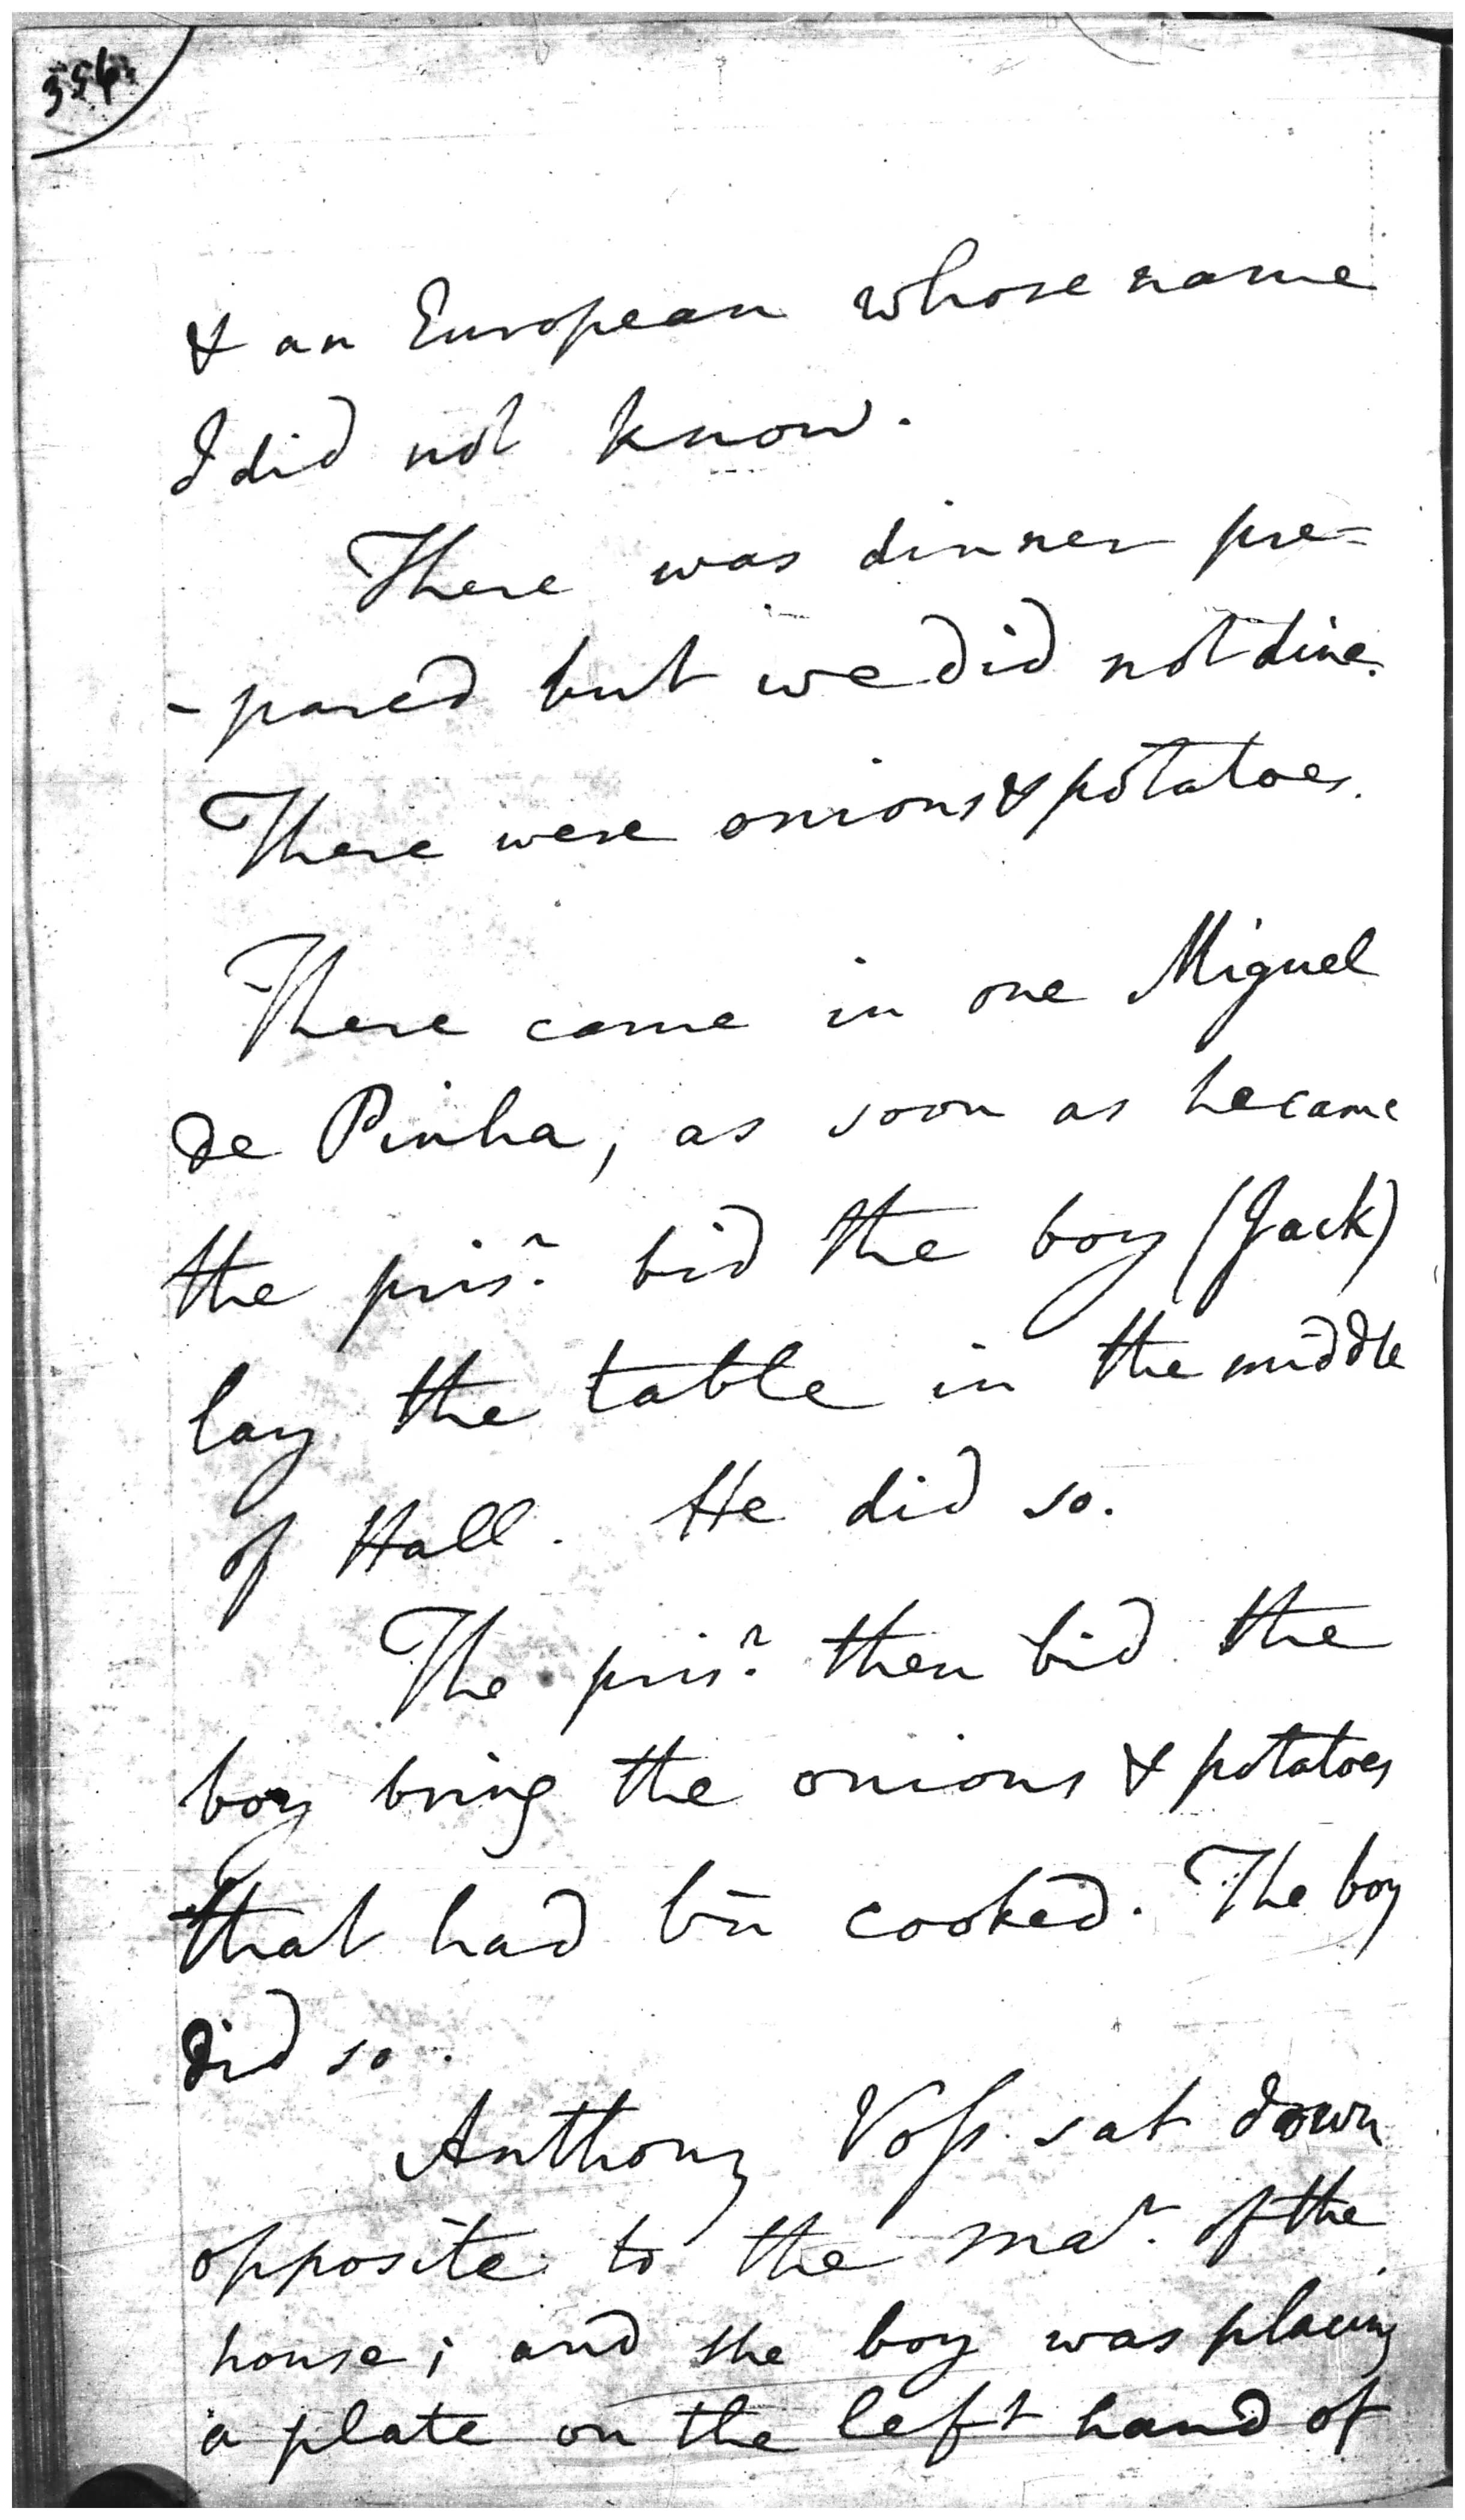 356
& an European whose name
I did not know.
There was dinner pre=
-pared but we did not dine.
There were onions & potatoes.
There came in one Miguel
de Pinha, as soon as he came
the prisr. bid the boy (Jack)
lay the table in the middle
of Hall. He did so.
The prisr. then bid the
boy bring the onions & potatoes
that had bn̄ cooked. The boy
did so.
Anthony Voss sat down
opposite to the mar. of the
house; and the boy was placing
a plate on the left hand of